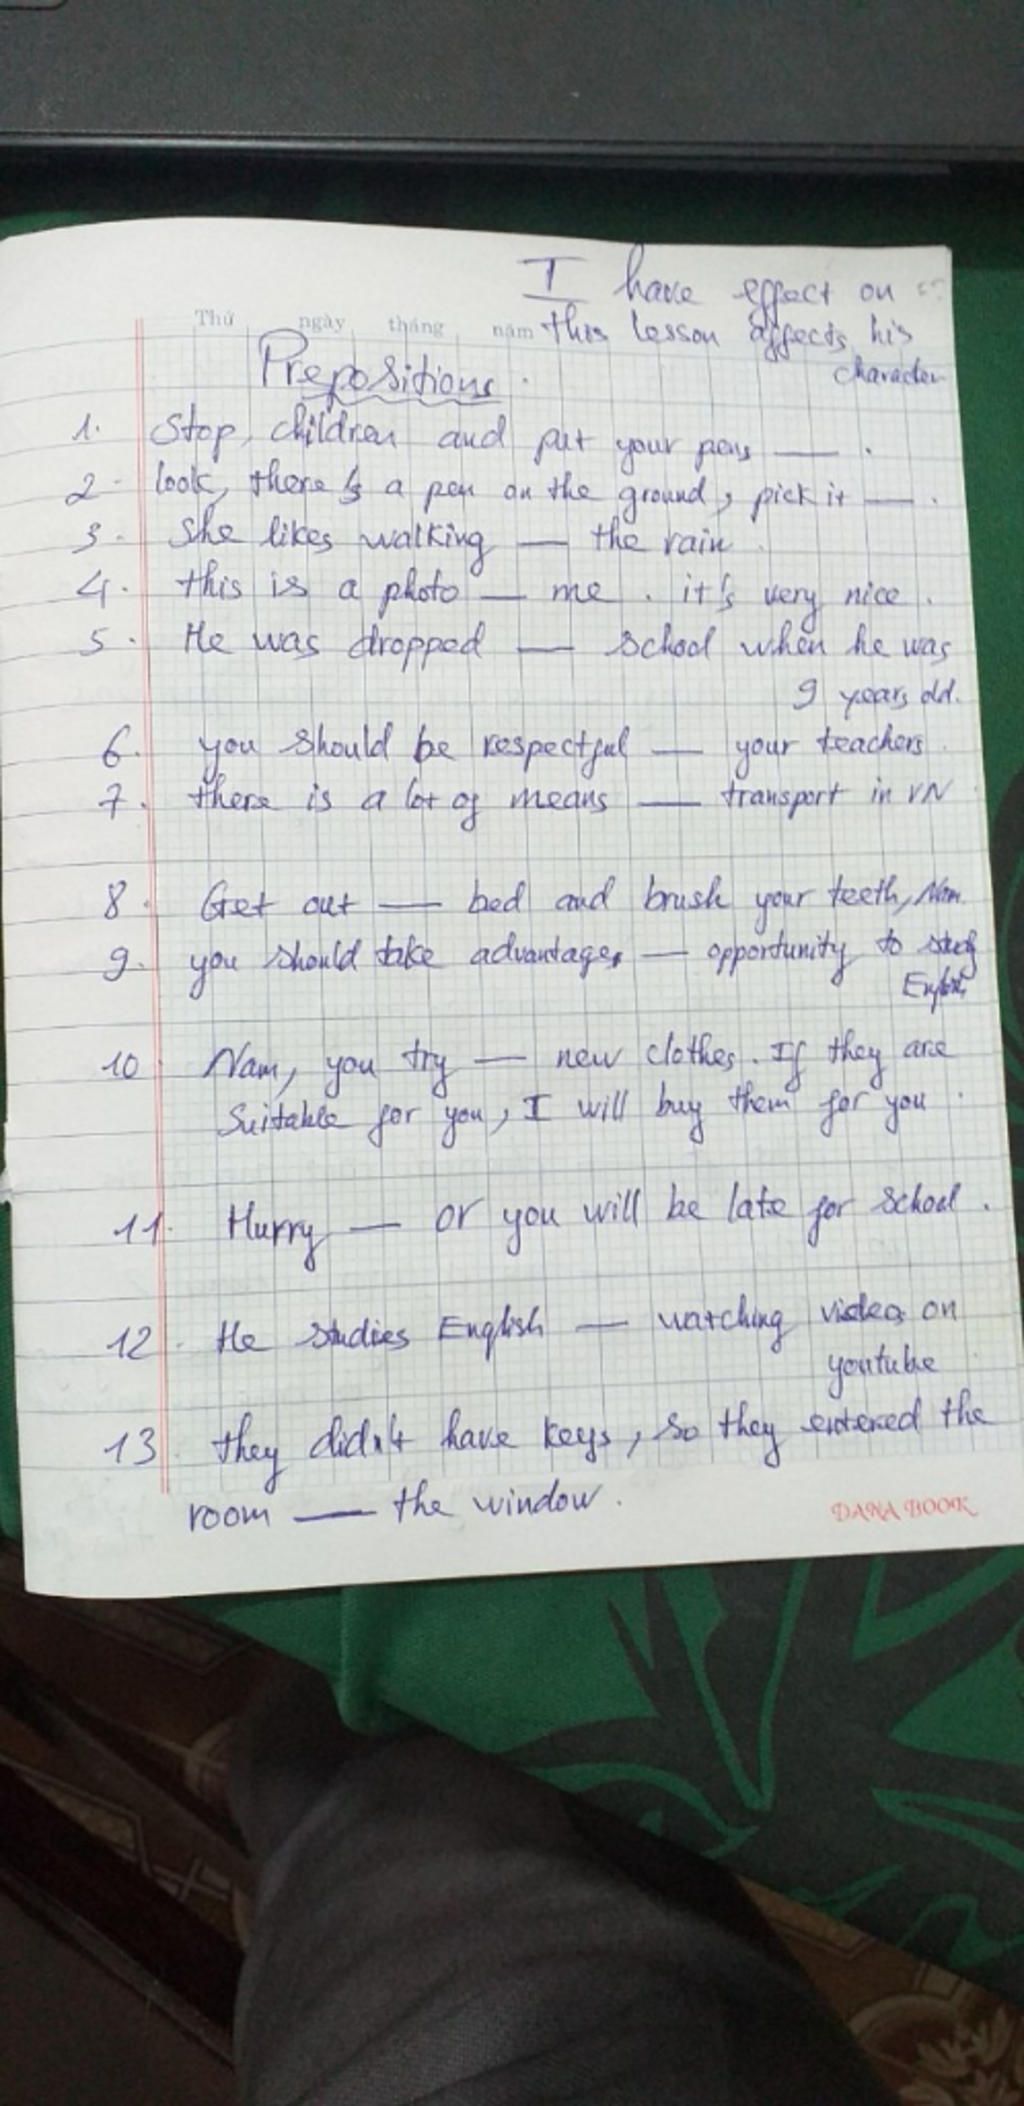 I have effect on
Thứ ngày tháng năm this lesson affects his
character
Prepositions.
1. Stop, children and put your pens ___ .
2. look, there is a pen on the ground, pick it ___ .
3. She likes walking ___ the rain.
4. this is a photo ___ me. it's very nice.
5. He was dropped ___ school when he was
9 years old.
6. you should be respectful ___ your teachers.
7. there is a lot of means ___ transport in VN
8. Get out ___ bed and brush your teeth, Nam.
9. you should take advantages ___ opportunity to study
English
10. Nam, you try ___ new clothes. If they are
Suitable for you, I will buy them for you.
11. Hurry ___ or you will be late for school.
12. He studies English ___ watching videos on
youtube
13. they didn't have keys, so they entered the
room ___ the window.
DANA BOOK